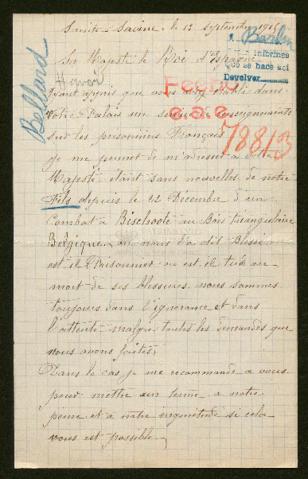 Sainte-Savine, le 13 septembre 1915
Sa Majesté le Roi d'Espagne
Bellard
Henri
Devolver
Ayant appris que vous avez dans
votre Palais un service de renseignements
sur les prisonniers Français
je me permet de m'adresser à
Majesté étant sans nouvelles de notre
Fils depuis le 12 Décembre d'un
Combat à Bischoote au Bois triangulaire
Belgique on nous l'a dit Blessé
est il Prisonnier ou est il tué ou
mort de ses blessures nous sommes
toujours dans l'ignorance et dans
l'attente malgré toutes les demandes que
nous avons faites.
Dans le cas je me recommande a vous
pour mettre un terme a notre
peine et a notre inquiétude si cela
vous est possible.
78813